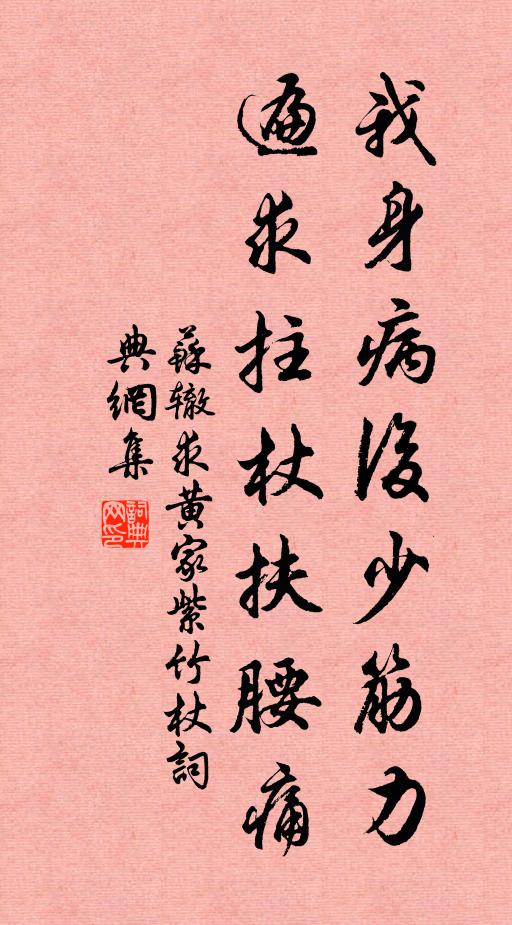 我身病後少筋力
遍求拄杖扶腰痛
蘇辙求黄家紫竹杖詞
典網集
詞典网印